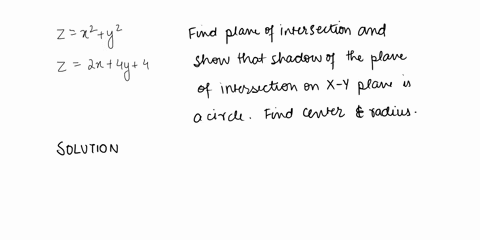 z = x² + y²
z = 2x + 4y + 4
Find plane of intersection and
show that shadow of the plane
of intersection on X-Y plane is
a circle. Find center & radius.
SOLUTION